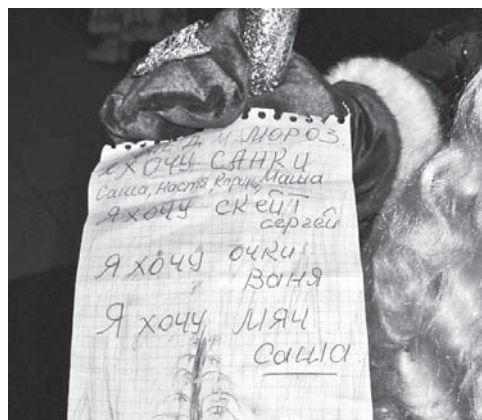 ДЕД МОРОЗ
Я ХОЧУ САНКИ
Саша, Настя, Карина, Маша
Я ХОЧУ СКЕЙТ
Сергей
Я ХОЧУ ОЧКИ
ВАНЯ
Я ХОЧУ МЯЧ
Саша